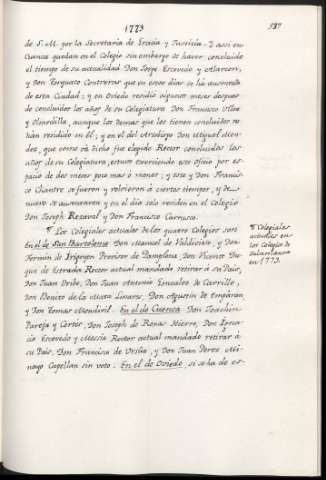 1773
de S. M. por la Secretaria de Gracia y Justicia. Y assi en
Cuenca quedan en el Colegio sin embargo de haver concluido
el tiempo de su actualidad Don Jorge Escovedo y Alarcon,
y Don Torquato Contreras que en estos dias se ha ausentado
de esta Ciudad: y en Oviedo residió algunos meses despues
de concluidos los años de su Colegiatura Don Francisco Ulloa
y Olmedilla, aunque los demas que los tienen concluidos no
han residido en él; y en el del Arzobispo Don Miguel Men-
dez, que como va dicho fue elegido Rector concluidos los
años de su Colegiatura, estuvo exerciendo este oficio por es-
pacio de dos meses poco mas ó menos; y este y Don Francis-
co Chantre se fueron y volvieron á ciertos tiempos, y de
nuevo se ausentaron y en el dia solo residen en el Colegio
Don Joseph Rezeval y Don Francisco Carrasco.
¶ Los Colegiales actuales de los quatro Colegios son:
En el de San Bartolome Don Manuel de Valdivieso, y Don
Fermin de Irigoyen Provisor de Pamplona, Don Vicente Du-
que de Estrada Rector actual mandado retirar á su Pais,
Don Juan Uribe, Don Juan Antonio Gonzalez de Carrillo,
Don Benito de la Mata Linares, Don Agustin de Emparan
y Don Tomas Mendivil. En el de Cuenca Don Joachin
Pareja y Cortes, Don Joseph de Rozas Nieros, Don Igna-
cio Escovedo y Mexia Rector actual mandado retirar á
su Pais, Don Francisco de Ursua, y Don Juan Perez Mi-
nayo Capellan sin voto. En el de Oviedo, si se ha de es-
¶ Colegiales
actuales en
los Colegios de
Salamanca
en 1773.